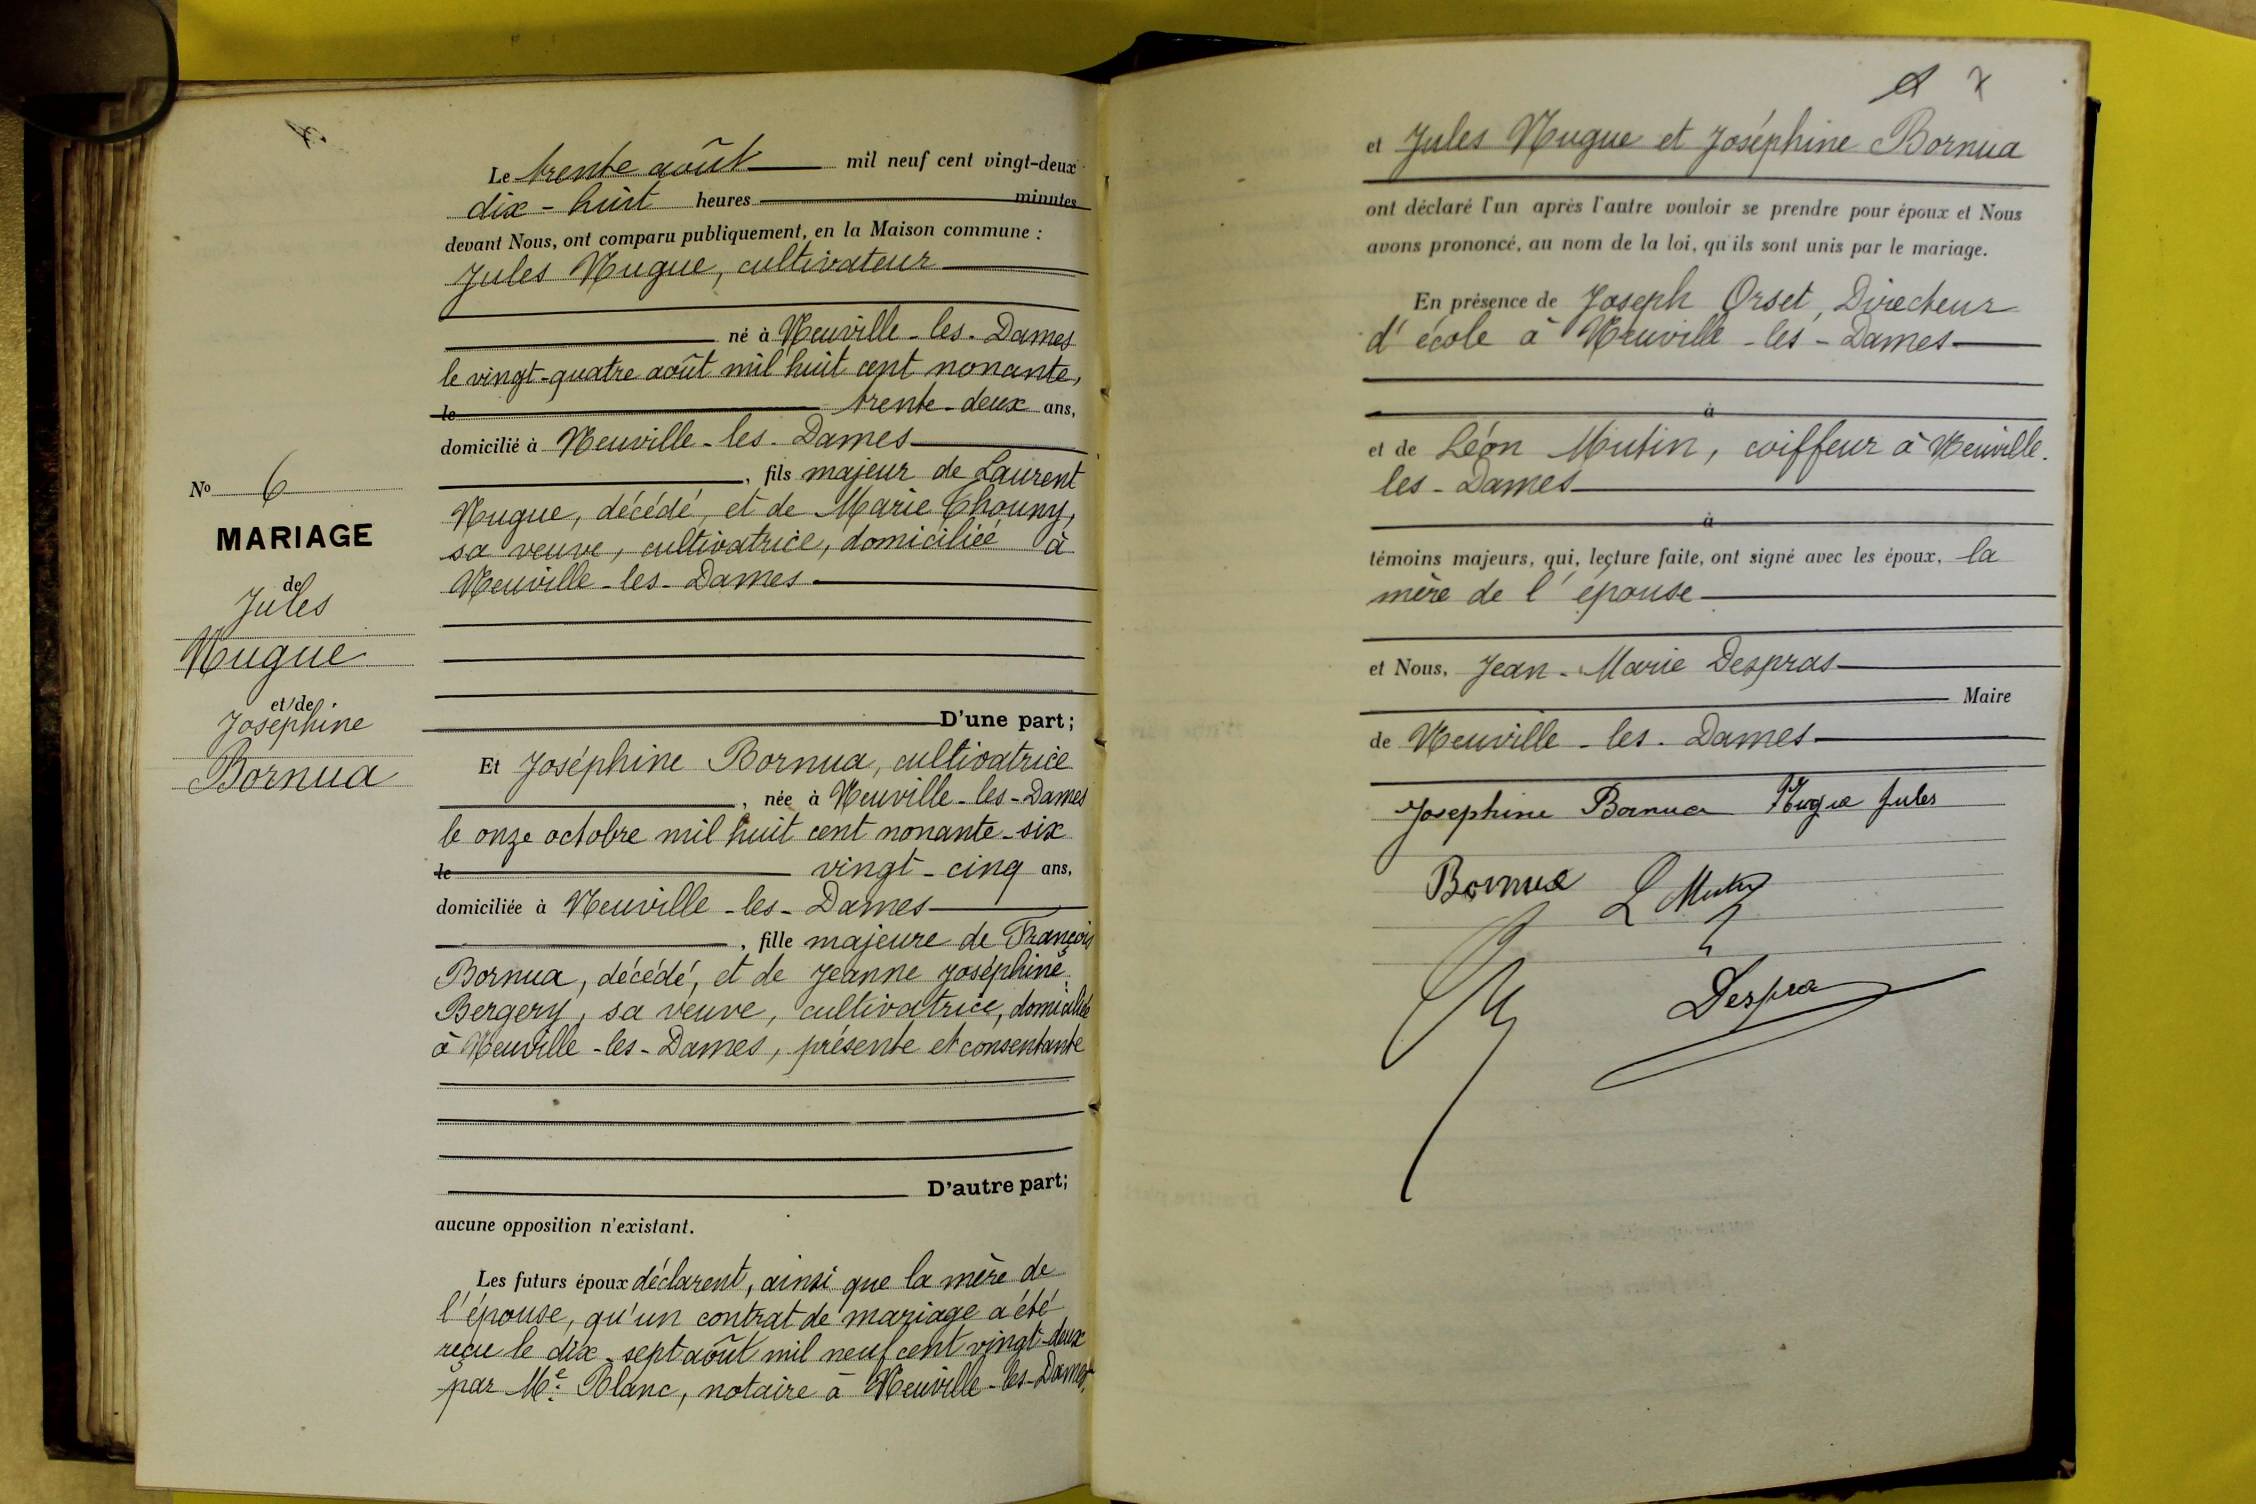 Le trente août mil neuf cent vingt-deux
dix-huit heures minutes
devant Nous, ont comparu publiquement, en la Maison commune :
Jules Nugue, cultivateur
né à Neuville-les-Dames
le vingt-quatre août mil huit cent nonante,
le trente-deux ans,
domicilié à Neuville-les-Dames
, fils majeur de Laurent
Nugue, décédé, et de Marie Chouny,
sa veuve, cultivatrice, domiciliée à
Neuville-les-Dames
D'une part;
No 6
MARIAGE
de
Jules
Nugue
et de
Joséphine
Bornua
Et Joséphine Bornua, cultivatrice
, née à Neuville-les-Dames
le onze octobre mil huit cent nonante-six
le vingt-cinq ans,
domiciliée à Neuville-les-Dames
, fille majeure de François
Bornua, décédé, et de Jeanne Joséphine
Bergery, sa veuve, cultivatrice, domiciliée
à Neuville-les-Dames, présente et consentante
D'autre part;
aucune opposition n'existant.
Les futurs époux déclarent, ainsi que la mère de
l'épouse, qu'un contrat de mariage a été
reçu le dix-sept août mil neuf cent vingt-deux
par Me. Blanc, notaire à Neuville-les-Dames.
7
et Jules Nugue et Joséphine Bornua
ont déclaré l'un après l'autre vouloir se prendre pour époux et Nous
avons prononcé, au nom de la loi, qu'ils sont unis par le mariage.
En présence de Joseph Orset, Directeur
d'école à Neuville-les-Dames
à
et de Léon Mutin, coiffeur à Neuville-
les-Dames
à
témoins majeurs, qui, lecture faite, ont signé avec les époux, la
mère de l'épouse
et Nous, Jean-Marie Despras
Maire
de Neuville-les-Dames
Josephine Bornua Nugue Jules
Bornua L Mutin
Despra